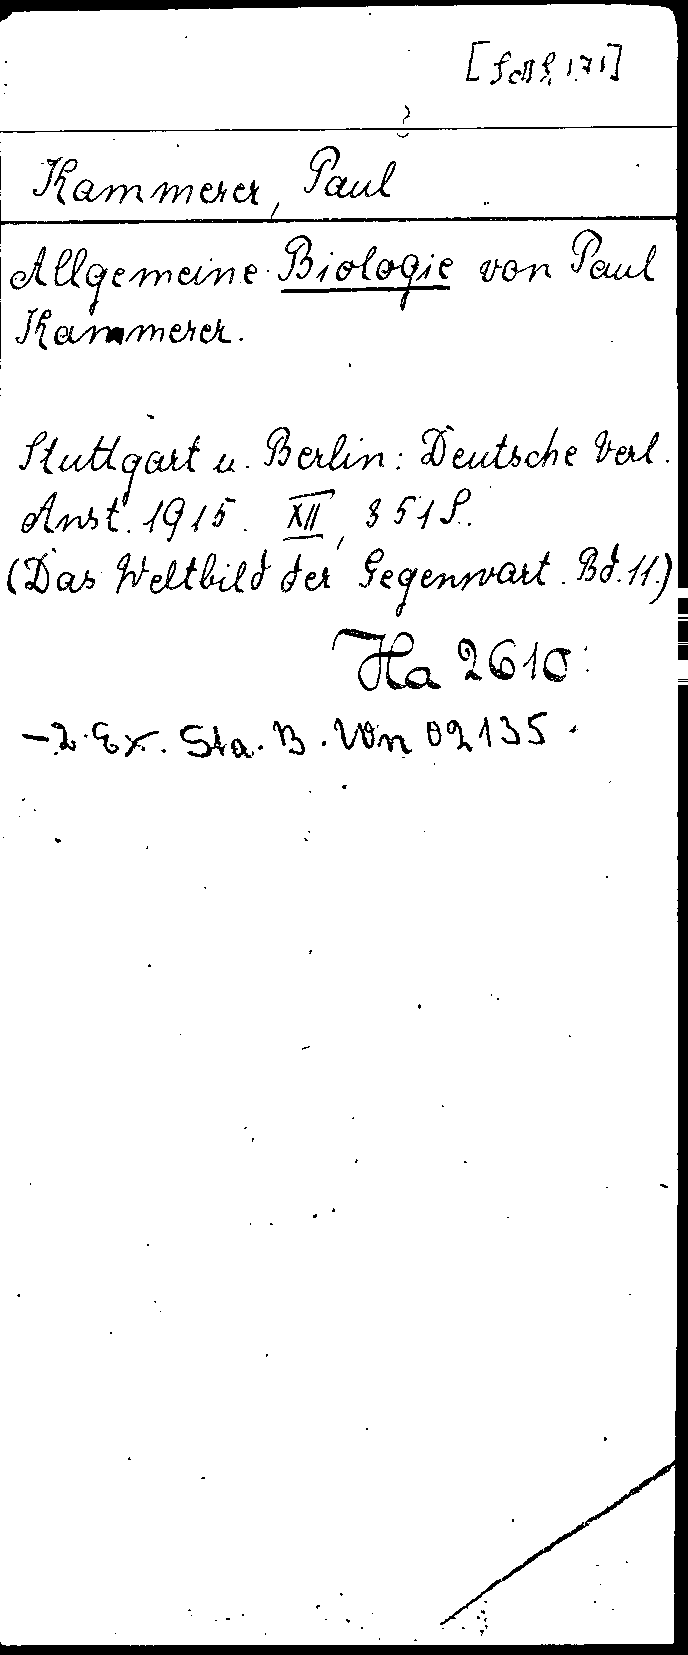 Kammerer, Paul
Allgemeine Biologie von Paul
Kammerer.
Stuttgart u. Berlin: Deutsche Verl.
Anst. 1915. XII, 351 S.
(Das Weltbild der Gegenwart. Bd. 11.)
Ha 2610
- 2. Ex. Sta. B. Von 02135.